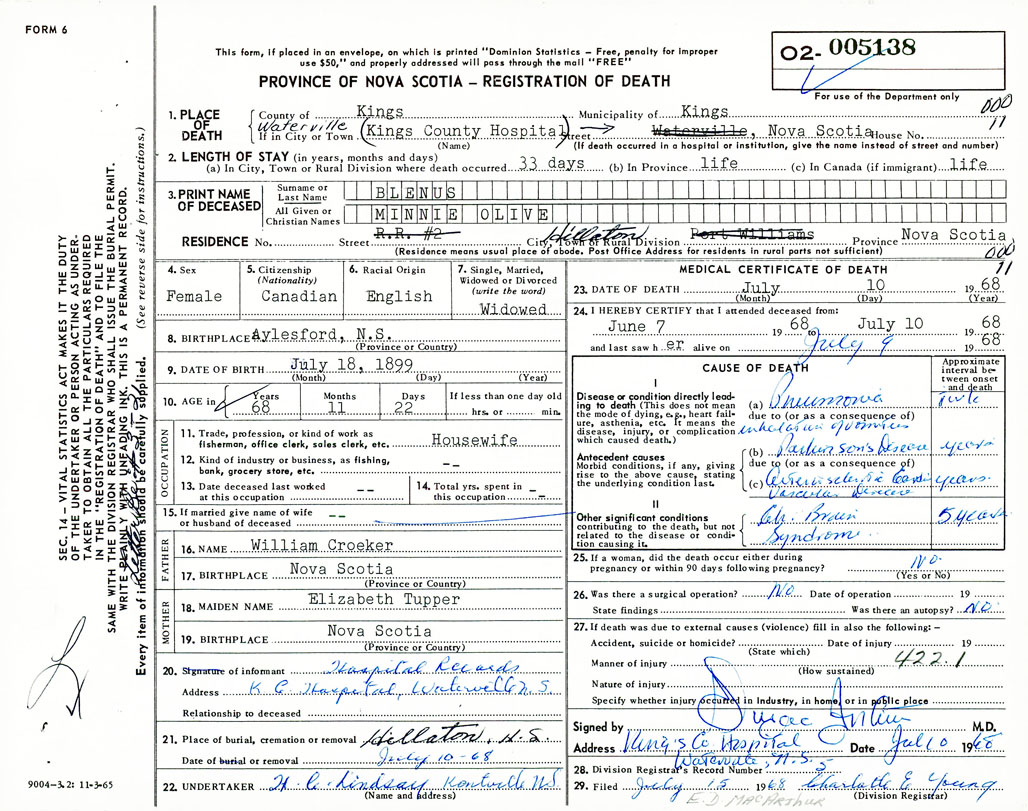 FORM 6
This form, if placed in an envelope, on which is printed "Dominion Statistics – Free, penalty for improper
use $50," and properly addressed will pass through the mail "FREE"
PROVINCE OF NOVA SCOTIA – REGISTRATION OF DEATH
02- 005138
For use of the Department only
000
11
1. PLACE OF DEATH
County of Kings Municipality of Kings
Waterville
If in City or Town (Kings County Hospital) Street → Waterville, Nova Scotia House No.
(Name) (If death occurred in a hospital or institution, give the name instead of street and number)
2. LENGTH OF STAY (in years, months and days)
(a) In City, Town or Rural Division where death occurred 33 days (b) In Province life (c) In Canada (if immigrant) life
3. PRINT NAME OF DECEASED
Surname or Last Name BLENUS
All Given or Christian Names MINNIE OLIVE
RESIDENCE No. Street R.R. #2 City, Town or Rural Division Hillaton Port Williams Province Nova Scotia
(Residence means usual place of abode. Post Office Address for residents in rural parts not sufficient)
000
11
4. Sex
Female
5. Citizenship
(Nationality)
Canadian
6. Racial Origin
English
7. Single, Married,
Widowed or Divorced
(write the word)
Widowed
8. BIRTHPLACE Aylesford, N.S.
(Province or Country)
9. DATE OF BIRTH July 18, 1899
(Month) (Day) (Year)
10. AGE in
Years 68
Months 11
Days 22
If less than one day old
hrs. or min.
OCCUPATION
11. Trade, profession, or kind of work as
fisherman, office clerk, sales clerk, etc. Housewife
12. Kind of industry or business, as fishing,
bank, grocery store, etc. --
13. Date deceased last worked
at this occupation --
14. Total yrs. spent in
this occupation --
15. If married give name of wife
or husband of deceased --
FATHER
16. NAME William Croeker
17. BIRTHPLACE Nova Scotia
(Province or Country)
MOTHER
18. MAIDEN NAME Elizabeth Tupper
19. BIRTHPLACE Nova Scotia
(Province or Country)
20. Signature of informant Hospital Records
Address K C Hospital, Waterville N.S.
Relationship to deceased
21. Place of burial, cremation or removal Hillaton, N.S.
Date of burial or removal July 10-68
22. UNDERTAKER H. C. Lindsay Kentville NS
(Name and address)
MEDICAL CERTIFICATE OF DEATH
23. DATE OF DEATH July 10 1968
(Month) (Day) (Year)
24. I HEREBY CERTIFY that I attended deceased from:
June 7 1968 to July 10 1968
and last saw her alive on July 9 1968
CAUSE OF DEATH
Approximate
interval be-
tween onset
and death
I
Disease or condition directly lead-
ing to death (This does not mean
the mode of dying, e.g., heart fail-
ure, asthenia, etc. It means the
disease, injury, or complication
which caused death.)
(a) Pneumonia
due to (or as a consequence of)
inhalation of vomitus
Antecedent causes
Morbid conditions, if any, giving
rise to the above cause, stating
the underlying condition last.
(b) Parkinson's Disease years
due to (or as a consequence of)
(c) Arteriosclerotic Cardio years.
Vascular Disease
II
Other significant conditions
contributing to the death, but not
related to the disease or condi-
tion causing it.
Chr. Brain 5 years
Syndrome
25. If a woman, did the death occur either during
pregnancy or within 90 days following pregnancy? NO.
(Yes or No)
26. Was there a surgical operation? NO. Date of operation 19
State findings Was there an autopsy? NO.
27. If death was due to external causes (violence) fill in also the following:–
Accident, suicide or homicide? Date of injury 19
(State which)
Manner of injury 422.1
(How sustained)
Nature of injury
Specify whether injury occurred in Industry, in home, or in public place
Signed by M.D.
Address King's Co Hospital Date Jul 10 1968
Waterville, N.S.
28. Division Registrar's Record Number 5
29. Filed July 15 1968 Charlotte E. Young
(Division Registrar)
E. D. MACARTHUR
SEC. 14 – VITAL STATISTICS ACT MAKES IT THE DUTY
OF THE UNDERTAKER OR PERSON ACTING AS UNDER-
TAKER TO OBTAIN ALL THE PARTICULARS REQUIRED
IN THE "REGISTRATION OF DEATH" AND TO FILE THE
SAME WITH THE DIVISION REGISTRAR WHO SHALL ISSUE THE BURIAL PERMIT.
WRITE PLAINLY WITH UNFADING INK. THIS IS A PERMANENT RECORD.
Every item of information should be carefully supplied. (See reverse side for instructions.)
9004-3.2: 11-3-65